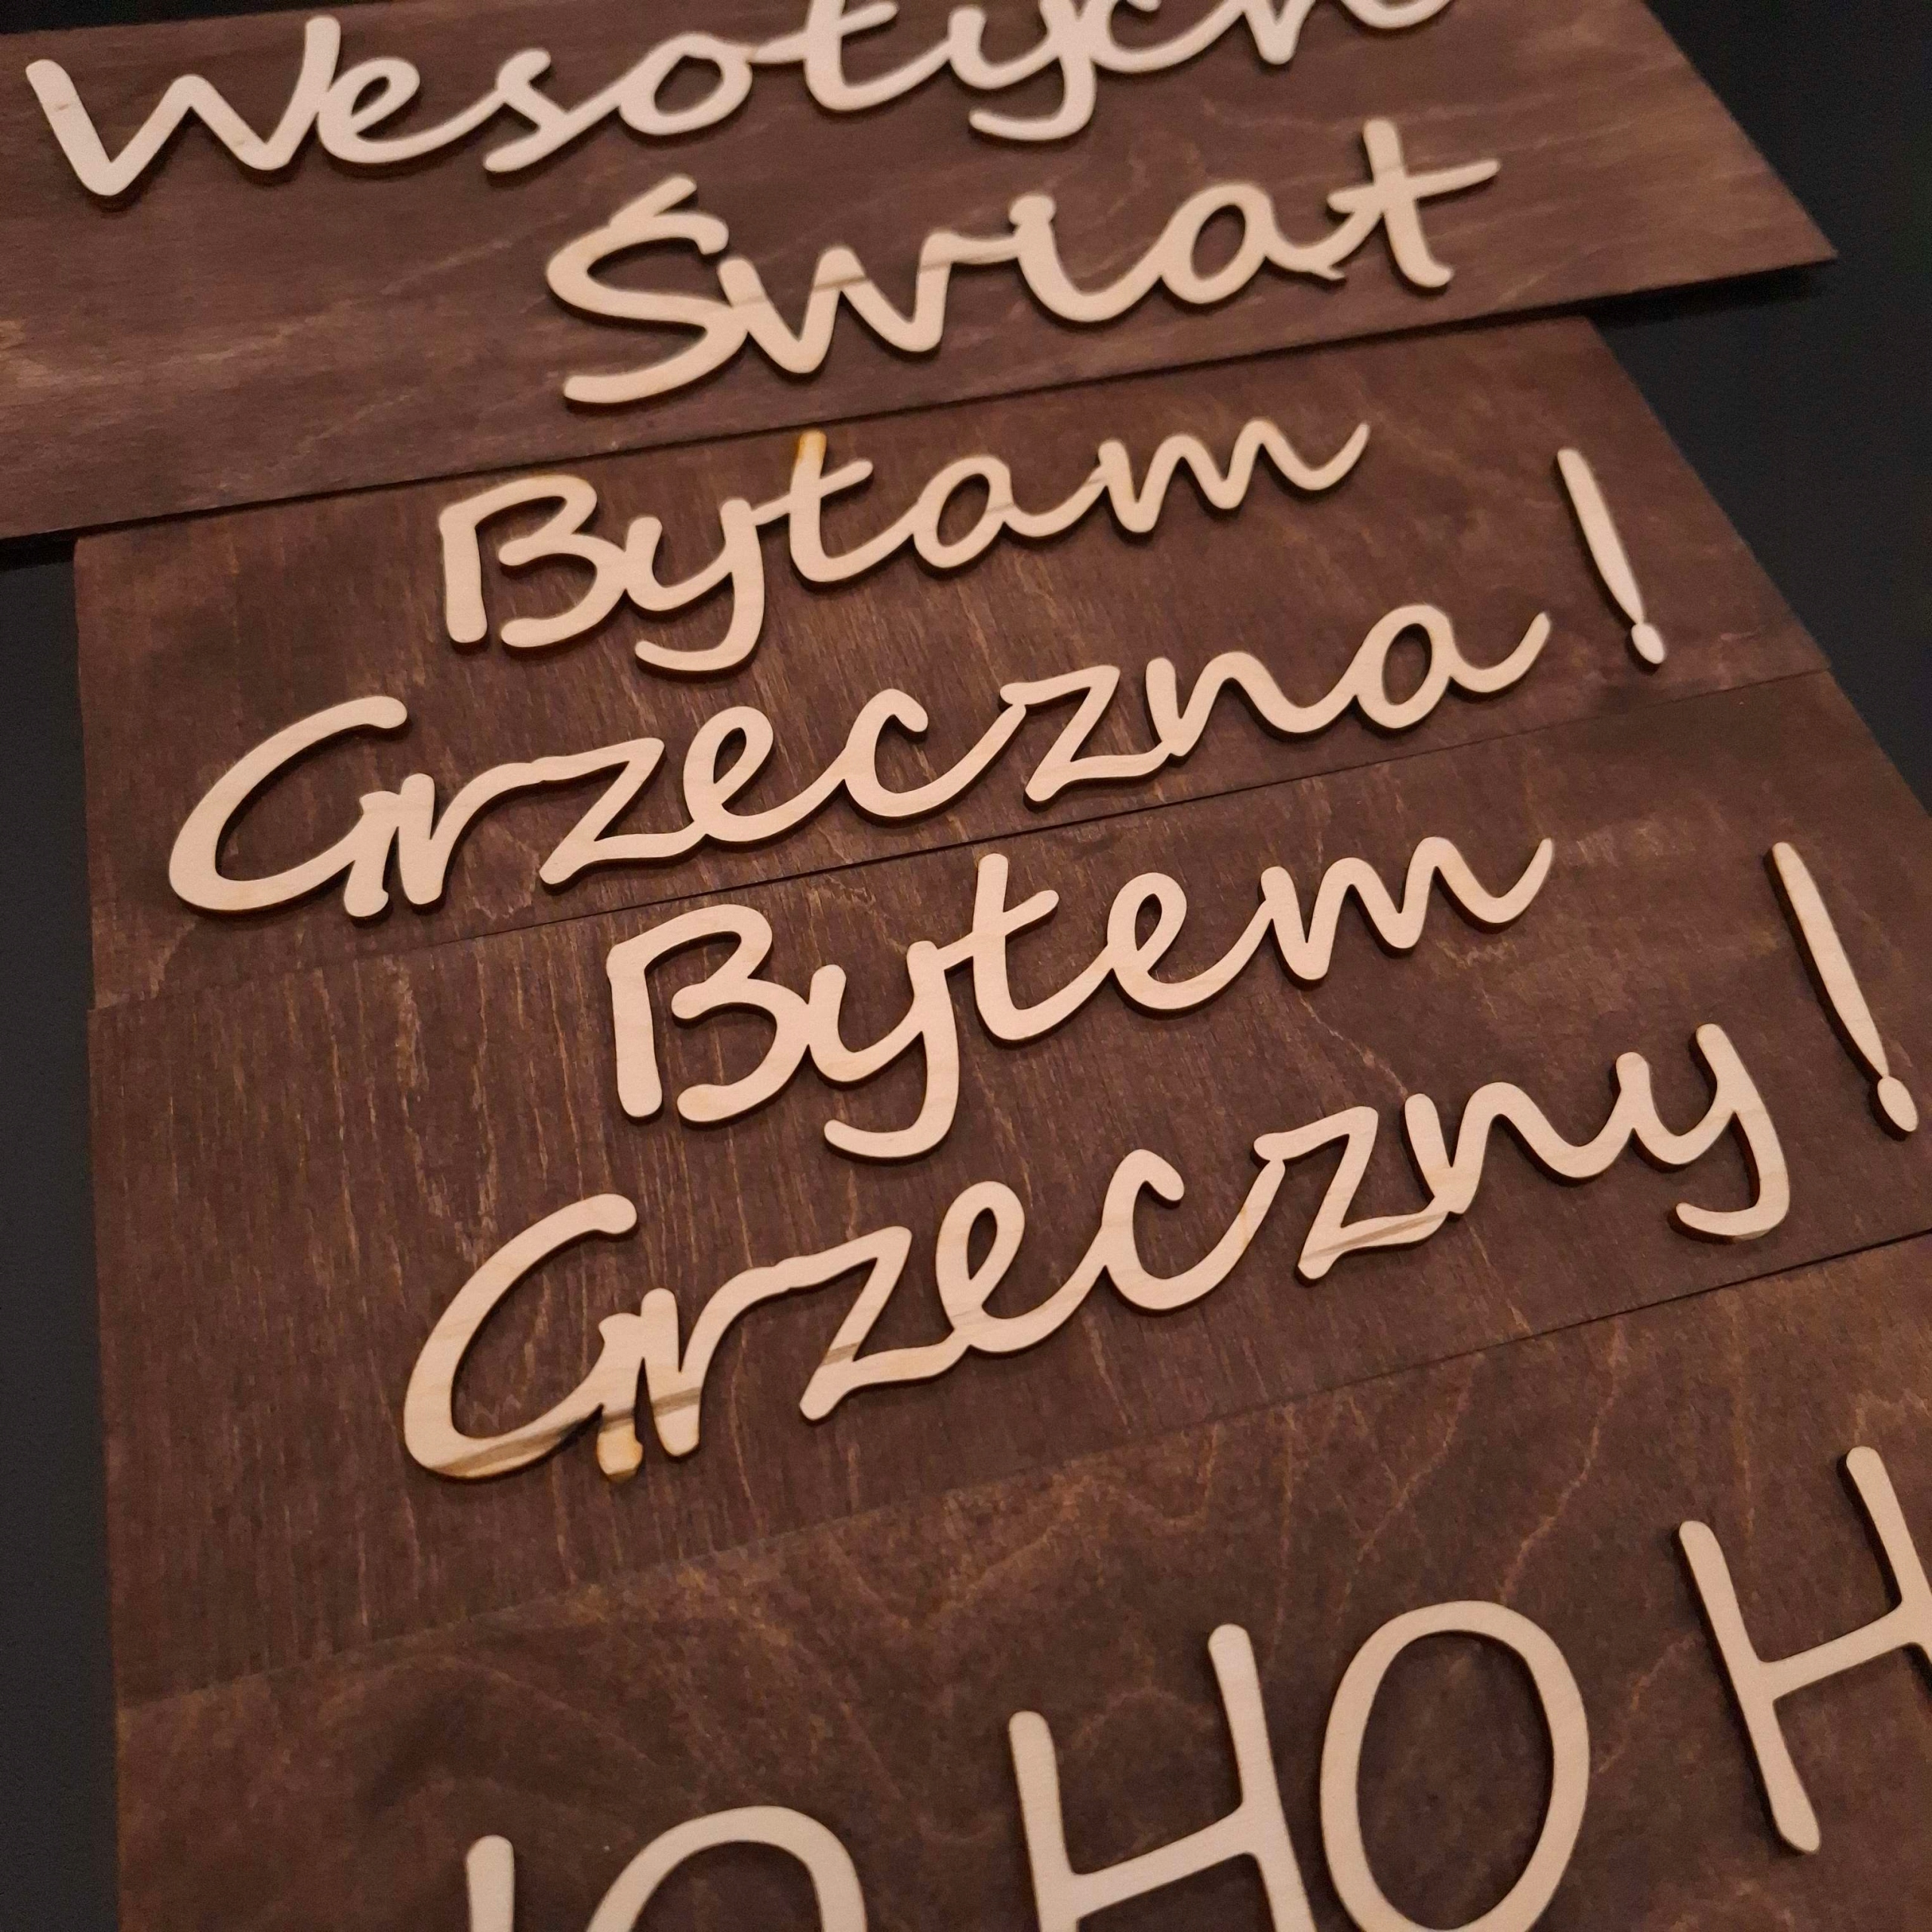 Wesołych
Świąt
Byłam
Grzeczna !
Byłem
Grzeczny !
HO HO H